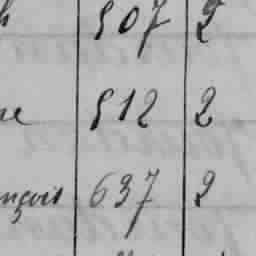 507 2
512 2
nçois 637 2